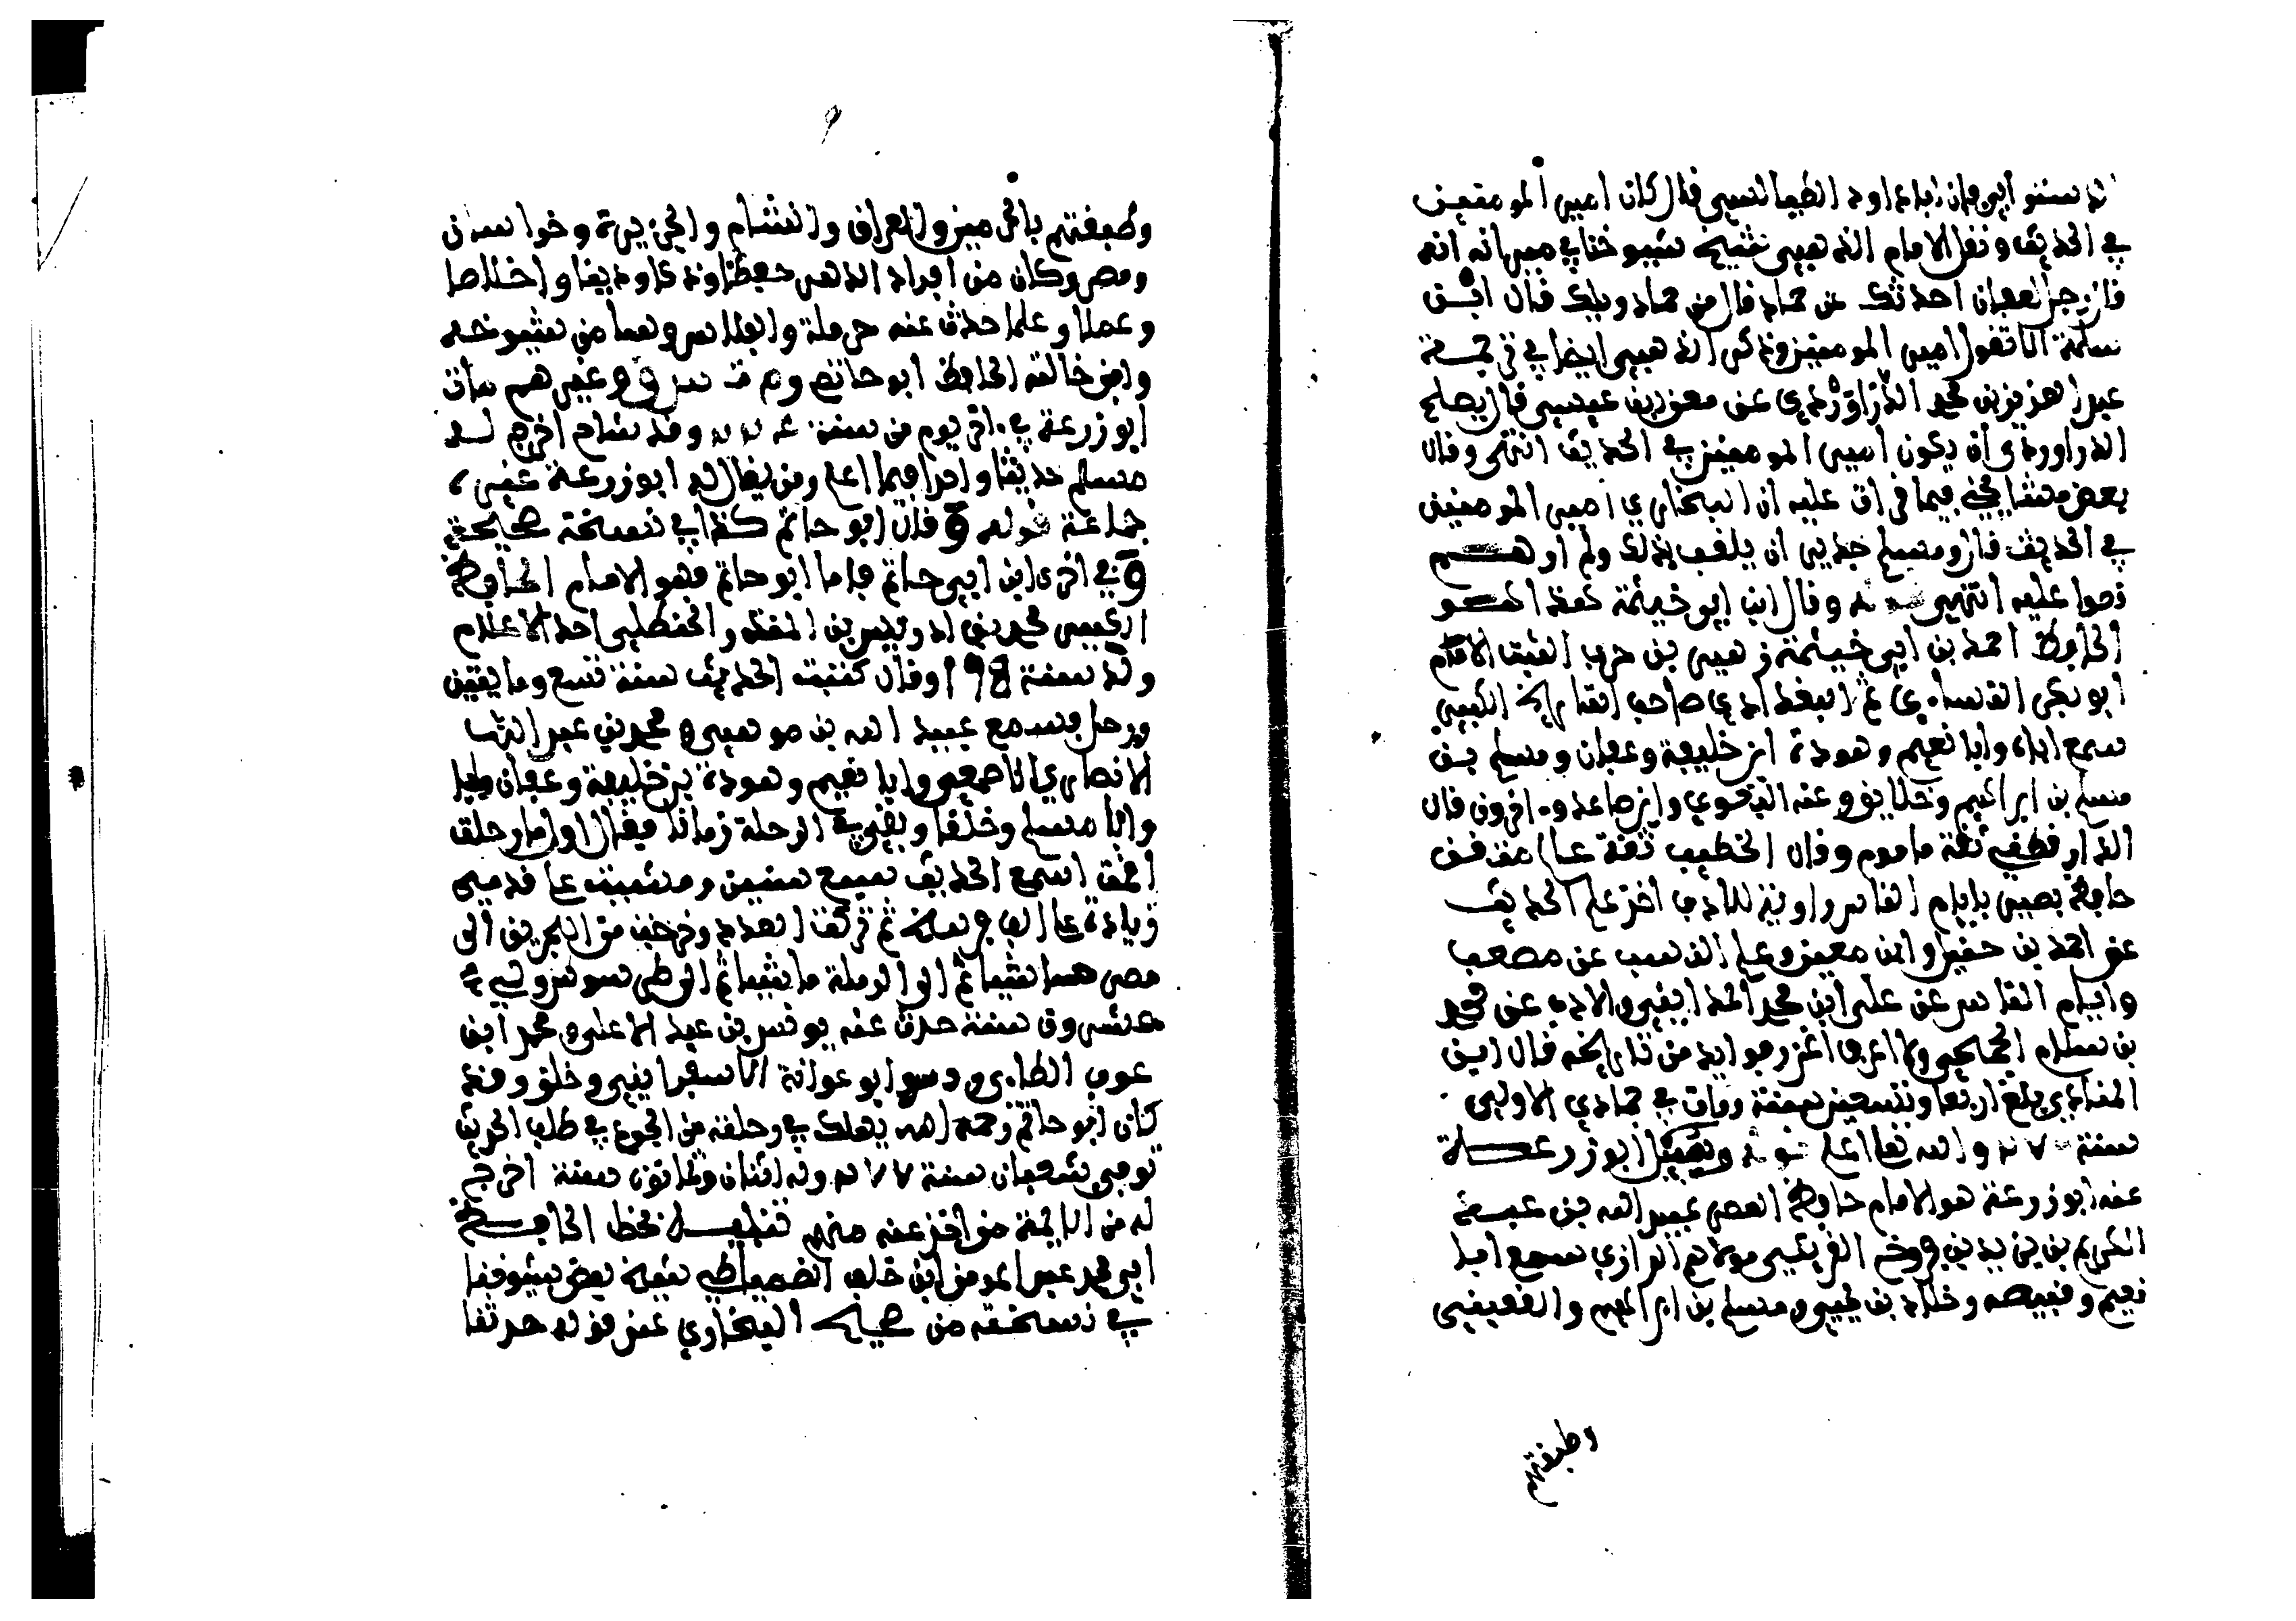 في الحديث ونقل الامام الذهبي شيخ شيوخنا في ميزانه انه
قال رجل لعفان احدثك عن حماد قال من حماد ويلك قال ابن
سلمة الا تقول امير المومنين وذكر الذهبي ايضا في ترجمة
عبد العزيز بن محمد الدراوردي عن معن بن عيسى قال يصلح
الدراوردي ان يكون امير المومنين في الحديث انتهى وقال
بعض مشايخي فيما قرات عليه ان البخاري امير المومنين
في الحديث قال ومسلم جدير ان يلقب بذلك ولم ارهم
نصوا عليه انتهى قوله وقال ابن ابي خيثمة هذا هو
الحافظ احمد بن ابي خيثمة زهير بن حرب الثبت الامام
ابو بكر النساءي ثم البغدادي صاحب التاريخ الكبير
سمع اباه وابا نعيم وهوذة ابن خليفة وعفان ومسلم بن
مسلم بن ابراهيم وخلايق وعنه البغوي وابن صاعد وءاخرون قال
الدارقطني ثقة مامون وقال الخطيب ثقة عالم متقن
حافظ بصير بايام الناس راوية للادب اخذ علم الحديث
عن احمد بن حنبل وابن معين وعلم النسب عن مصعب
وايام الناس عن علي ابن محمد المدايني والادب عن محمد
بن سلام الجمحي ولا اعرف اغزر فوايد من تاريخه قال ابن
المنادي بلغ اربعا وتسعين سنة ومات في جمادي الاولى
سنة والله تعالى اعلم قوله وقيل ابو زرعة
عنه ابو زرعة هو الامام حافظ العصر عبيد الله بن عبد
الكريم بن يزيد بن فروخ القريشي مولاهم الرازي سمع ابا
نعيم وقبيصة وخلاد بن يحيى ومسلم بن ابراهيم والقعنبي
وطبقتهم
وطبقتهم بالحرمين والعراق والشام والجزيرة وخراسان
ومصر وكان من افراد الدهر حفظا وذكاء ودينا واخلاصا
وعملا وعلما حدث عنه حرملة والفلاس وهما من شيوخه
وابن خالته الحافظ ابو حاتم و م ت س ق وغيرهم مات
ابو زرعة في ءاخر يوم من سنة وقد شاخ اخرج له
مسلم حديثا واحدا فيما اعلم ومن يقال له ابو زرعة غير
جماعة قوله وقال ابو حاتم كذا في نسخة صحيحة
وفي اخرى ابن ابي حاتم فاما ابو حاتم فهو الامام الحافظ
الكبير محمد بن ادريس بن المنذر الحنظلي احد الاعلام
ولد سنة 198 وقال كتبت الحديث سنة تسع ومايتين
ورحل فسمع عبيد الله بن موسى و محمد بن عبد الله
الانصاري والاصمعي وابا نعيم وهوذة بن خليفة وعفان
وابا مسلم وخلقا وبقي في الرحلة زمانا فقال اول ما رحلت
اقمت اسمع الحديث سبع سنين ومشيت على قدمي
زيادة على الف فرسخ ثم تركت العدد وخرجت من البحرين الى
مصر ماشيا ثم الى الرملة ماشيا ثم الى طرسوس ولي
عشرون سنة حدث عنه يونس بن عبد الاعلى ومحمد ابن
عوف الطاءي و د س وابو عوانة الاسفراييني وخلق وقد
كان ابو حاتم رحمه الله يهلك في رحلته من الجوع في طلب الحديث
توفي في شعبان سنة وله اثنان وثمانون سنة اخرج
له من الايمة من اخذ عنه منهم تنبيه بخط الحافظ
ابي محمد عبد المومن ابن خلف الدمياطي شيخ بعض شيوخنا
في نسخته من صحيح البخاري عند قوله حدثنا